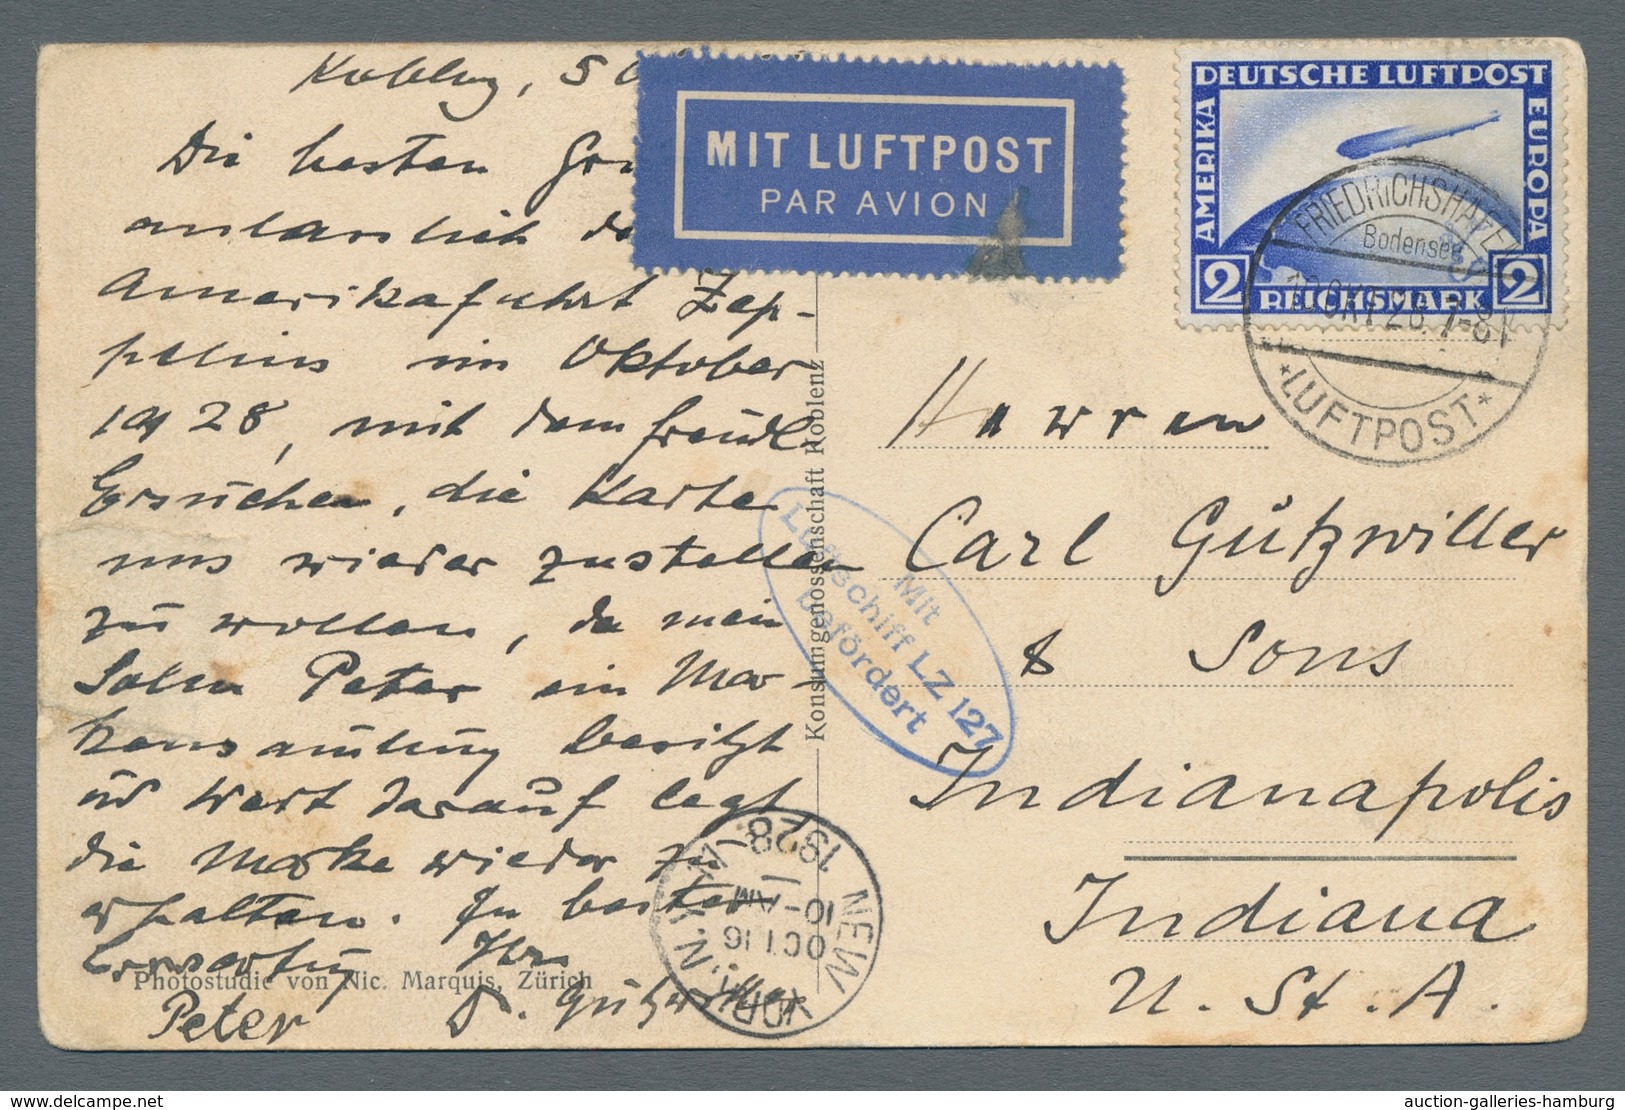 Koblenz, 5
Die besten
anlässlich
Amerikafahrt Zep-
pelins im Oktober
1928, mit dem freudl.
Ersuchen, die Karte
uns wieder zustellen
zu wollen, da mein
Sohn Peter ein Mar-
kensamlung besitzt
und Wert darauf legt
die Marke wieder zu
erhalten. In bester
Erwartung Ihr
Peter Gützwiller
Photostudie von Nic. Marquis, Zürich
Konsumgenossenschaft Koblenz
MIT LUFTPOST
PAR AVION
DEUTSCHE LUFTPOST
AMERIKA
EUROPA
2 REICHSMARK 2
FRIEDRICHSHAFEN
Bodensee
10.OKT.28.7-8V
*LUFTPOST*
Mit
Luftschiff LZ 127
befördert
NEW YORK, N.Y.
OCT 16
10-AM
1928
Herren
Carl Gützwiller
& Sons
Indianapolis
Indiana
U. St. A.
auction-galleries-hamburg